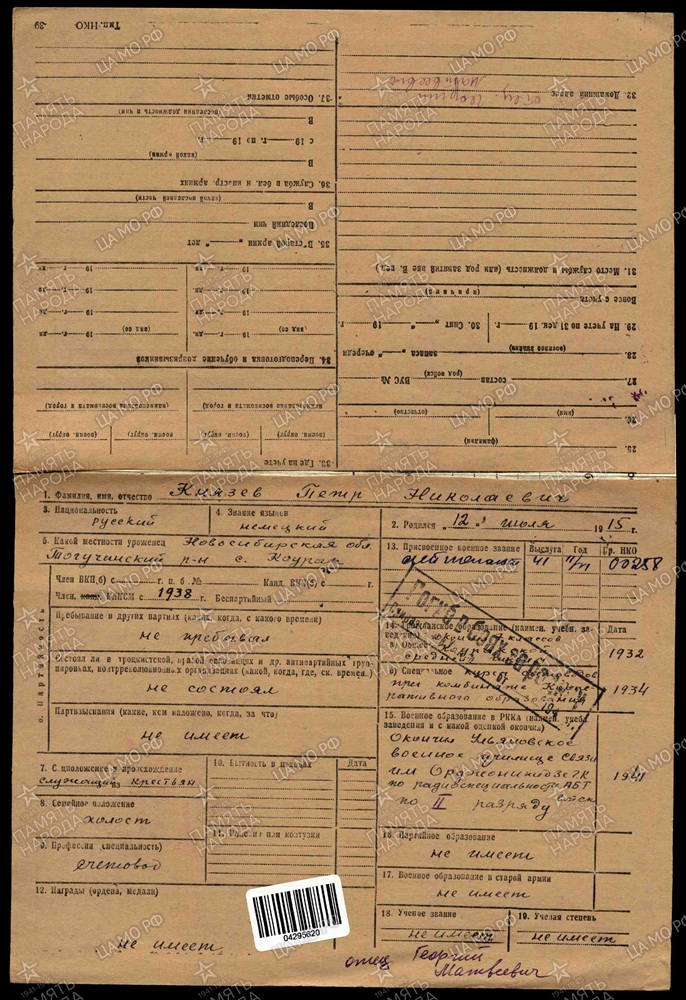 39 Тип. НКО
37. Особые отметки
(последняя должность и чин)
В
с 19 г. по 19 г.
(какой армии)
В
36. Служба в бел. и иностр. армиях
(какой последней части)
В
Последний чин
35. В старой армии „ “ лет
19 г. дн
19 г. дн
19 г. дн
19 г. дн
(вид сб) 19 г. дн
(вид сб) 19 г. дн
34. Переподготовка и обучение допризывников
(наименование военкомата и город)
(наименование военкомата и город)
(воен. округ) (воен. округ) (воен. округ) (воен. округ)
33. Где на учете
32. Домашний адрес
отец Георгий
Матвеевич
31. Место службы и должность (или род занятий вне В. вед.)
(причина)
Вовсе с учета
29. На учете по 31 дек. 19 г. 30. Снят „ “ 19 г.
(военное звание)
28. запаса „ “ очереди
(род войск)
27. состав ВУС №
(имя) (отчество)
26.
(фамилия)
25.
1. Фамилия, имя, отчество Князев Петр Николаевич
3. Национальность русский
4. Знание языков немецкий
2. Родился „12“ июля 1915 г.
5. Какой местности уроженец Новосибирская обл.
Тогучинский р-н с. Коурак
13. Присвоенное военное звание Выслуга Год Пр. НКО
лейтенант 41 11/VI 00258
6. Партийность
Член ВКП(б) с г. п. б. № Канд. ВКП(б) с г.
Член, канд. ВЛКСМ с 1938 г. Беспартийный
Пребывание в других партиях (каких, когда, с какого времени)
не пребывал
Состоял ли в троцкистской, правой оппозиции и др. антипартийных группировках, контрреволюционных организациях (какой, когда, где, ск. времени)
не состоял
Партвзыскания (какие, кем наложено, когда, за что)
не имеет
Погиб
14. Гражданское образование (наимен. учебн. заведения)
Дата
а) Общее
среднюю
1932
б) Специальное курсы
при комбинате
ративного образования
1934
15. Военное образование в РККА (наимен. учебн. заведения и с какой оценкой окончил)
Окончил Ульяновское
военное училище связи
им Орджоникидзе Г.К
по радиоспециальности АБТ
по II разряду
1941
7. Соцположение и происхождение
служащий крестьян
8. Семейное положение
холост
9. Профессия (специальность)
счетовод
10. Бытность в походах Дата
11. Ранения или контузии
12. Награды (ордена, медали)
не имеет
16. Партийное образование
не имеет
17. Военное образование в старой армии
не имеет
18. Ученое звание
не имеет
19. Ученая степень
не имеет
04295620
отец Георгий
Матвеевич
ПАМЯТЬ НАРОДА
ЦА МО РФ